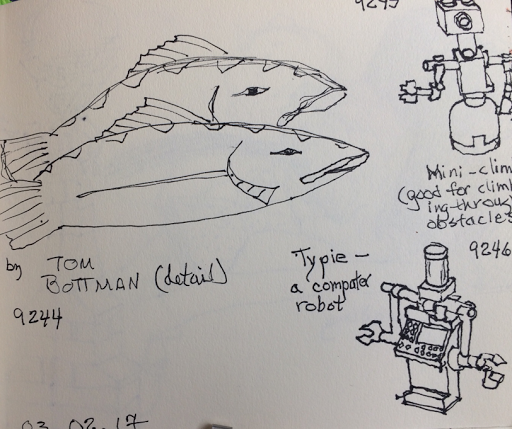 9245
Mini-clim
(good for climb
ing-through
obstacles
by TOM
BOTTMAN (detail)
9244
9246
Typie -
a computer
robot
03.02.17